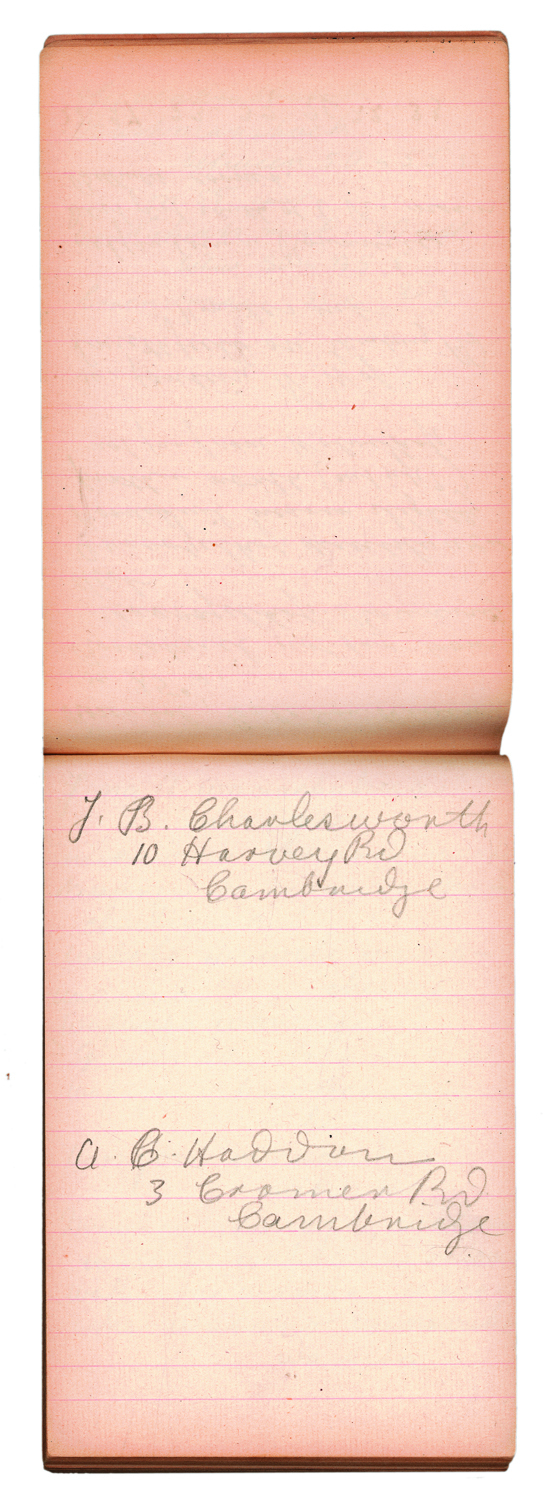 J. B. Charlesworth
10 Harvey Rd
Cambridge
A. C. Haddon
3 Cromer Rd
Cambridge